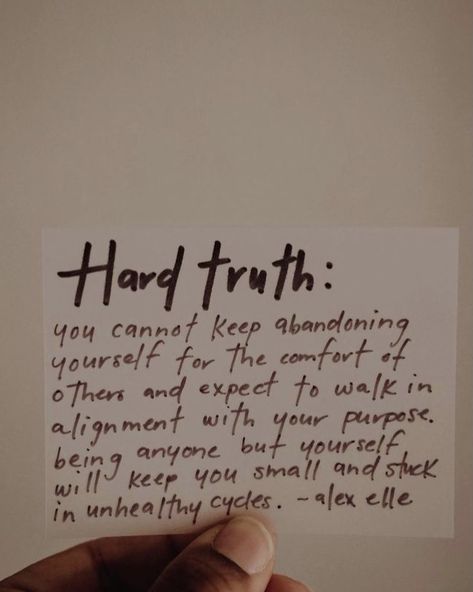 Hard truth:
you cannot keep abandoning
yourself for the comfort of
others and expect to walk in
alignment with your purpose.
being anyone but yourself
will keep you small and stuck
in unhealthy cycles. ~alex elle